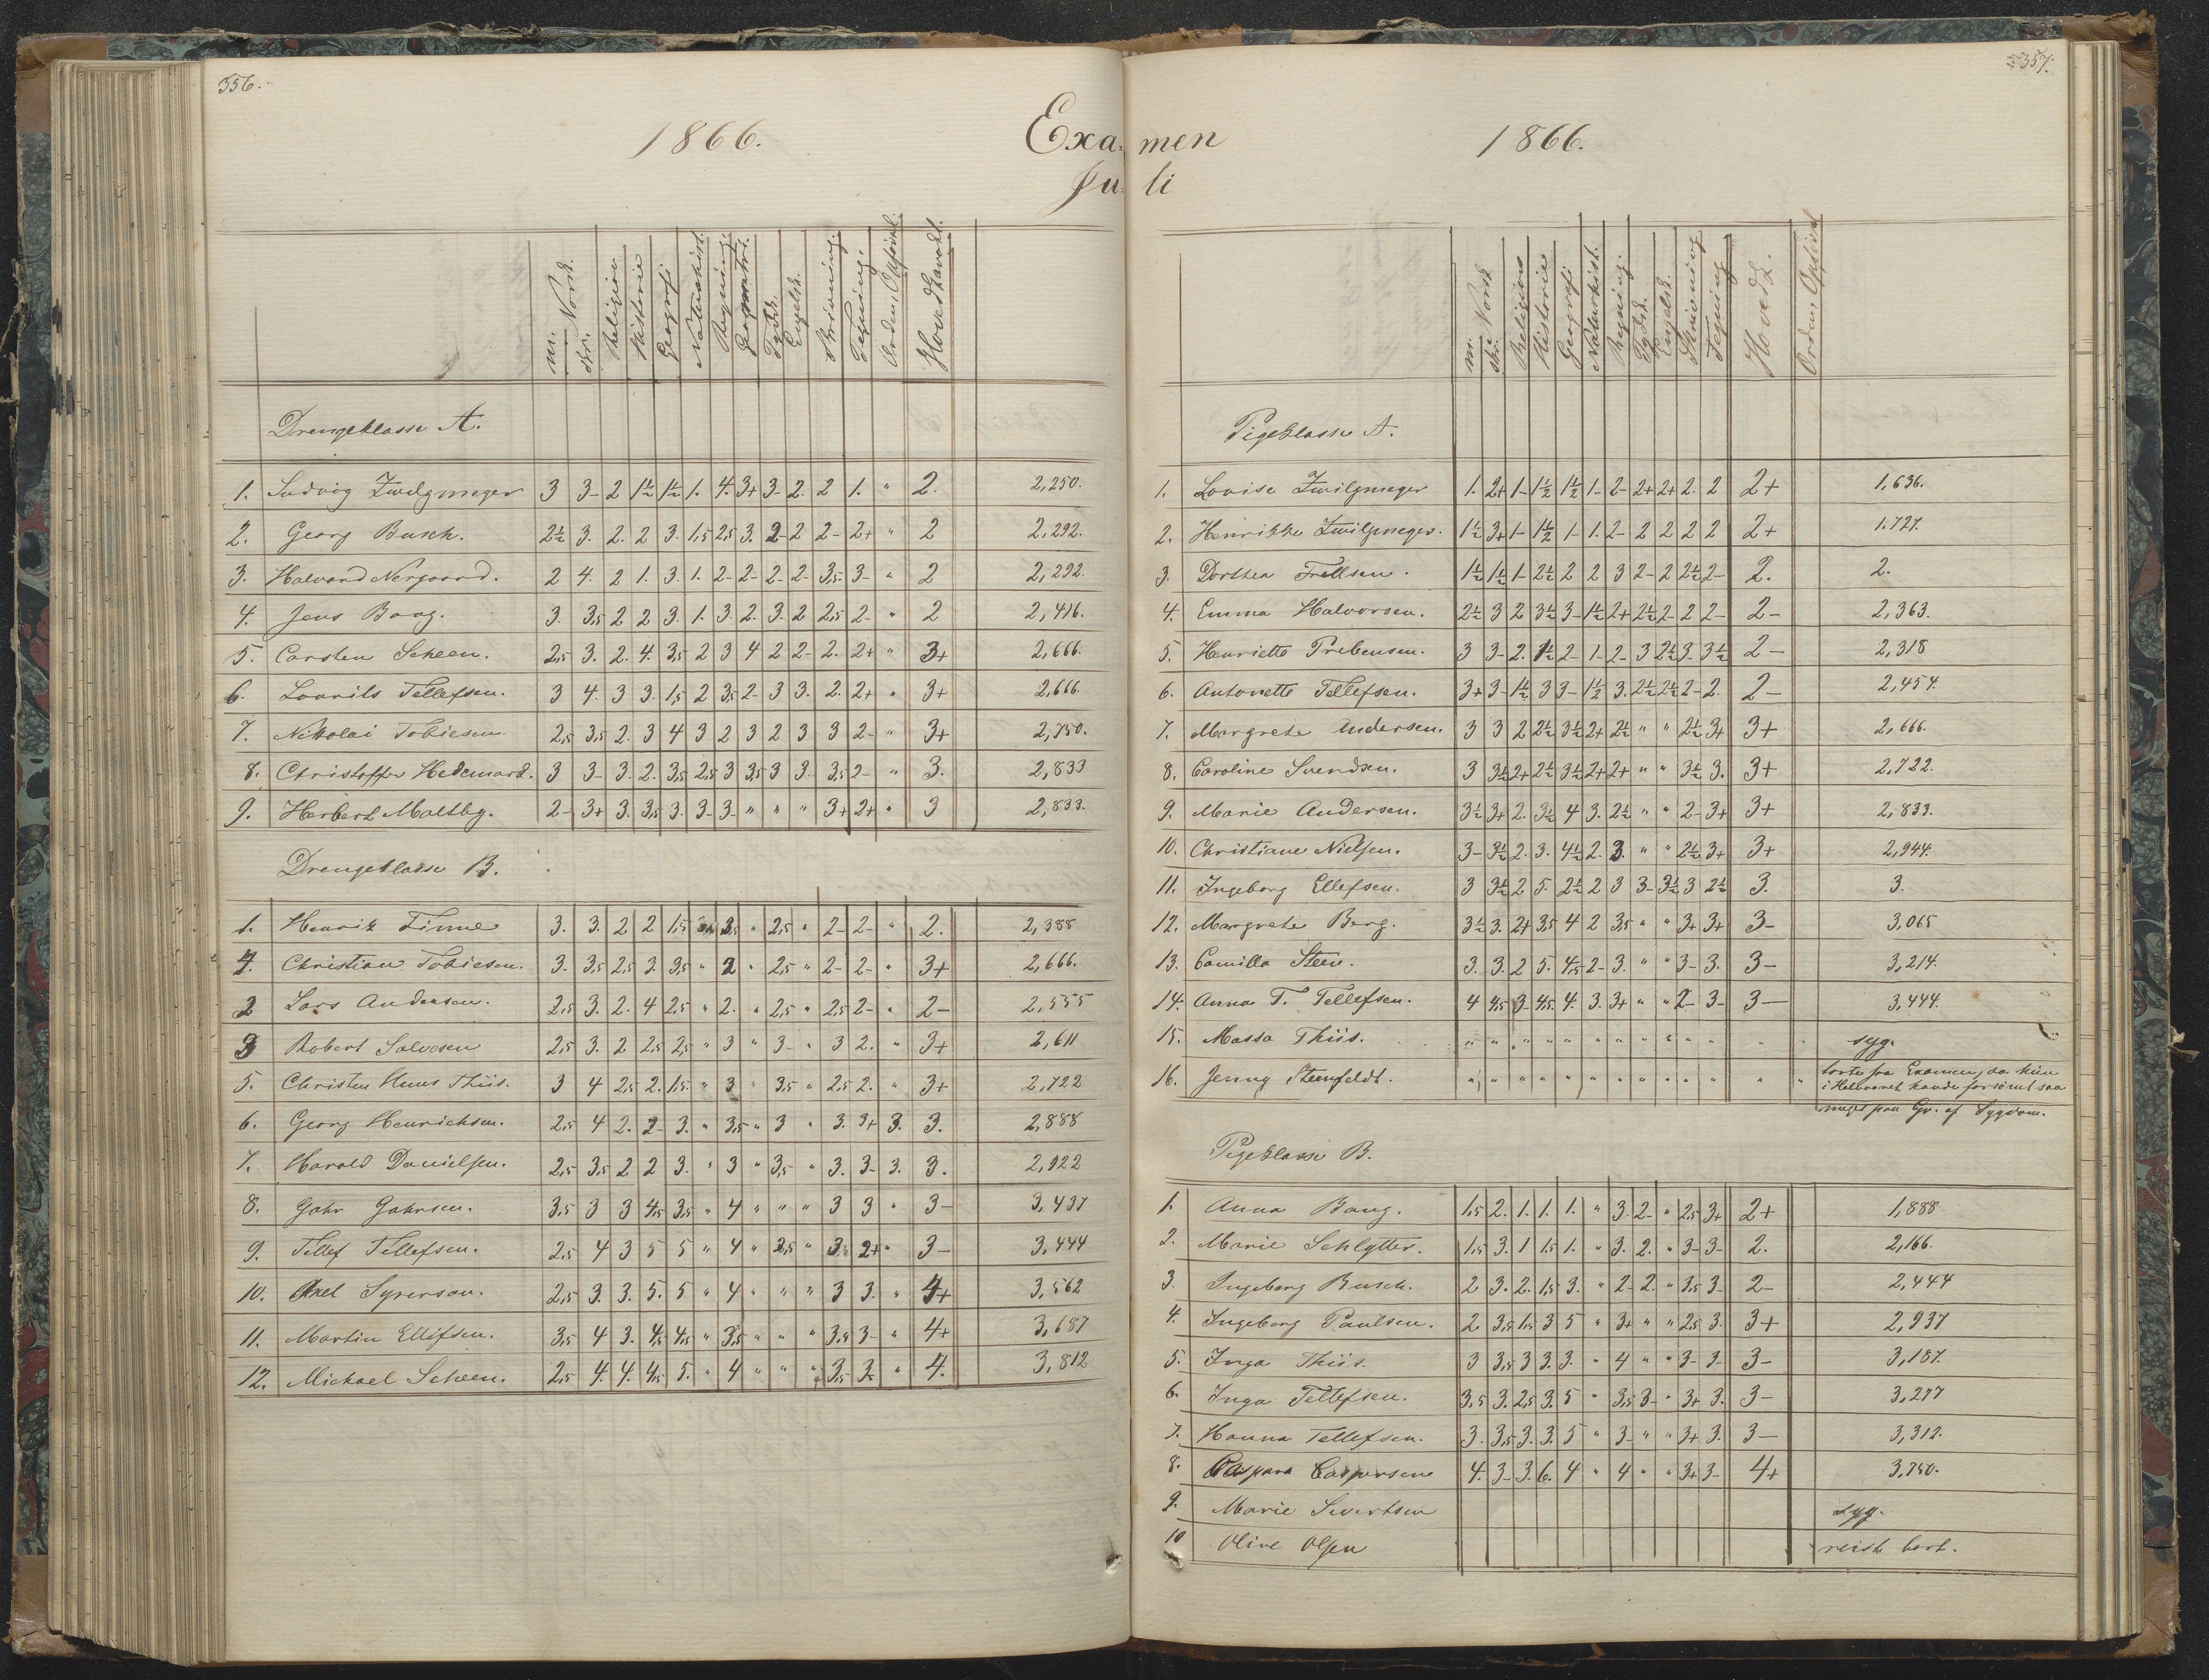 356.
1866. Exa-
Ju-
m. Norsk. skr. Religion Historie Geografi Naturhist. Regning. Geometri. Tydsk. Engelsk. Skrivning. Tegning. Orden, Opførsel. Hovedkarakt.
Drengeklasse A.
1. Ludvig Zwilgmeyer 3 3- 2 1½ 1½ 1. 4. 3+ 3- 2. 2 1. " 2. 2,250.
2. Georg Busch. 2½ 3. 2. 2 3. 1,5 2,5 3. 2- 2 2- 2+ " 2 2,292.
3. Halvard Nergaard. 2 4. 2 1. 3. 1. 2- 2- 2- 2- 3,5 3- " 2 2,292.
4. Jens Bang. 3. 3,5 2 2 3. 1. 3. 2. 3. 2 2,5 2- " 2 2,416.
5. Carsten Scheen. 2,5 3. 2. 4. 3,5 2 3 4 2 2- 2. 2+ " 3+ 2,666.
6. Laurits Tellefsen. 3 4. 3 3. 1,5 2 3,5 2- 3 3. 2. 2+ " 3+ 2,666.
7. Nikolai Tobiesen. 2,5 3,5 2. 3 4 3 2 3 2 3 3 2- " 3+ 2,750.
8. Christoffer Hedemark. 3 3- 3. 2. 3,5 2,5 3 3,5 3 3. 3,5 2- " 3. 2,833
9. Herbert Maltby. 2- 3+ 3. 3,5 3. 3- 3- " " " 3+ 2+ " 3 2,833.
Drengeklasse B.
1. Henrik Finne 3. 3. 2 2 1,5 3,5 " 2,5 " 2- 2- " 2. 2,388
4. Christian Tobiesen. 3. 3,5 2,5 3. 3,5 " 2 " 2,5 " 2- 2- " 3+ 2,666.
2 Lars Andersen. 2,5 3. 2. 4 2,5 " 2. " 2,5 " 2,5 2- " 2- 2,555
3 Robert Salvesen 2,5 3. 2 2,5 2,5 " 3 " 3- " 3 2. " 3+ 2,611
5. Christen Huus Thiis. 3 4 2,5 2. 1,5 " 3 " 3,5 " 2,5 2. " 3+ 2,722
6. Georg Henrichsen. 2,5 4 2. 2- 3. " 3,5 " 3 " 3. 3+ 3. 3. 2,888
7. Harald Danielsen. 2,5 3,5 2 2 3. " 3 " 3,5 " 3. 3- 3. 3. 2,922
8. Gahr Gahrsen. 3,5 3 3 4,5 3,5 " 4 " " " 3 3 " 3- 3,437
9. Tellef Tellefsen. 2,5 4 3 5 5 " 4 " 3,5 " 3. 2+ " 3- 3,444
10. Axel Syversen. 2,5 3. 3. 5. 5 " 4 " " " 3 3. " 4+ 3,562
11. Martin Ellefsen. 3,5 4 3. 4,5 4,5 " 3,5 " " " 3,5 3- " 4+ 3,687
12. Michael Scheen. 2,5 4. 4. 4,5 5. " 4 " " " 3,5 3. " 4. 3,812
357.
men 1866.
li
m. Norsk skr. Religion Historie Geografi Naturhist. Regning. Tydsk. Engelsk. Skrivning Tegning Hovedk. Orden, Opførsel
Pigeklasse A.
1. Lovise Zwilgmeyer 1. 2+ 1- 1½ 1½ 1- 2- 2+ 2+ 2. 2 2+ 1,636.
2. Henrikke Zwilgmeyer. 1½ 3+ 1- 1½ 1- 1. 2- 2 2 2 2 2+ 1.727.
3. Dorthea Frellsen. 1½ 1½ 1- 2½ 2 2 3 2- 2 2½ 2- 2. 2.
4. Emma Halvorsen. 2½ 3 2 3½ 3- 1½ 2+ 2½ 2- 2 2- 2- 2,363.
5. Henriette Prebensen. 3 3- 2. 1½ 2- 1- 2- 3 2½ 3- 3½ 2- 2,318
6. Antonette Tellefsen. 3+ 3- 1½ 3 3- 1½ 3. 2½ 2½ 2- 2. 2- 2,454.
7. Margrete Andersen. 3 3 2 2½ 3½ 2+ 2½ " " 2½ 3+ 3+ 2,666.
8. Caroline Svendsen. 3 3½ 2+ 2½ 3½ 2+ 2+ " " 3½ 3. 3+ 2,722.
9. Marie Andersen. 3½ 3+ 2. 3½ 4 3. 2½ " " 2- 3+ 3+ 2,833.
10. Christiane Nielsen. 3- 3½ 2. 3. 4½ 2. 3. " " 2½ 3+ 3+ 2,944.
11. Ingeborg Ellefsen. 3 3½ 2 5. 2½ 2 3 3- 3½ 3 2½ 3. 3.
12. Margrete Berg. 3½ 3. 2+ 3,5 4 2 3,5 " " 3+ 3+ 3- 3,065
13. Camilla Steen. 3. 3. 2 5. 4,5 2- 3. " " 3- 3. 3- 3,214.
14. Anna T. Tellefsen. 4 4,5 3- 4,5 4. 3. 3+ " " 2- 3- 3- 3,444.
15. Massa Thiis. " " " " " " " " " " " " " syg.
16. Jenny Steenfeldt. " " " " " " " " " " " " " borte fra Examen, da hun
i Halvaaret havde forsømt saa
meget paa Gr. af Sygdom.
Pigeklasse B.
1. Anna Bang. 1,5 2. 1. 1. 1. " 3. 2- " 2,5 3+ 2+ 1,888
2. Marie Schlytter. 1,5 3. 1 1,5 1. " 3. 2. " 3- 3- 2. 2,166.
3. Ingeborg Busch. 2 3. 2. 1,5 3. " 2- 2. " 3,5 3- 2- 2,444
4. Ingeborg Paulsen. 2 3,5 1,5 3 5 " 3+ " " 2,5 3. 3+ 2,937
5. Inga Thiis. 3 3,5 3 3. 3. " 4 " " 3- 3- 3- 3,187.
6. Inga Tellefsen. 3,5 3. 2,5 3. 5 " 3,5 3- " 3+ 3. 3- 3,277
7. Hanna Tellefsen. 3. 3,5 3. 3. 5 " 3- " " 3+ 3. 3- 3,312.
8. Caspara Caspersen 4. 3- 3. 6. 4 " 4 " " 3+ 3- 4+ 3,750.
9. Marie Sivertsen syg.
10 Oline Olsen reist bort.